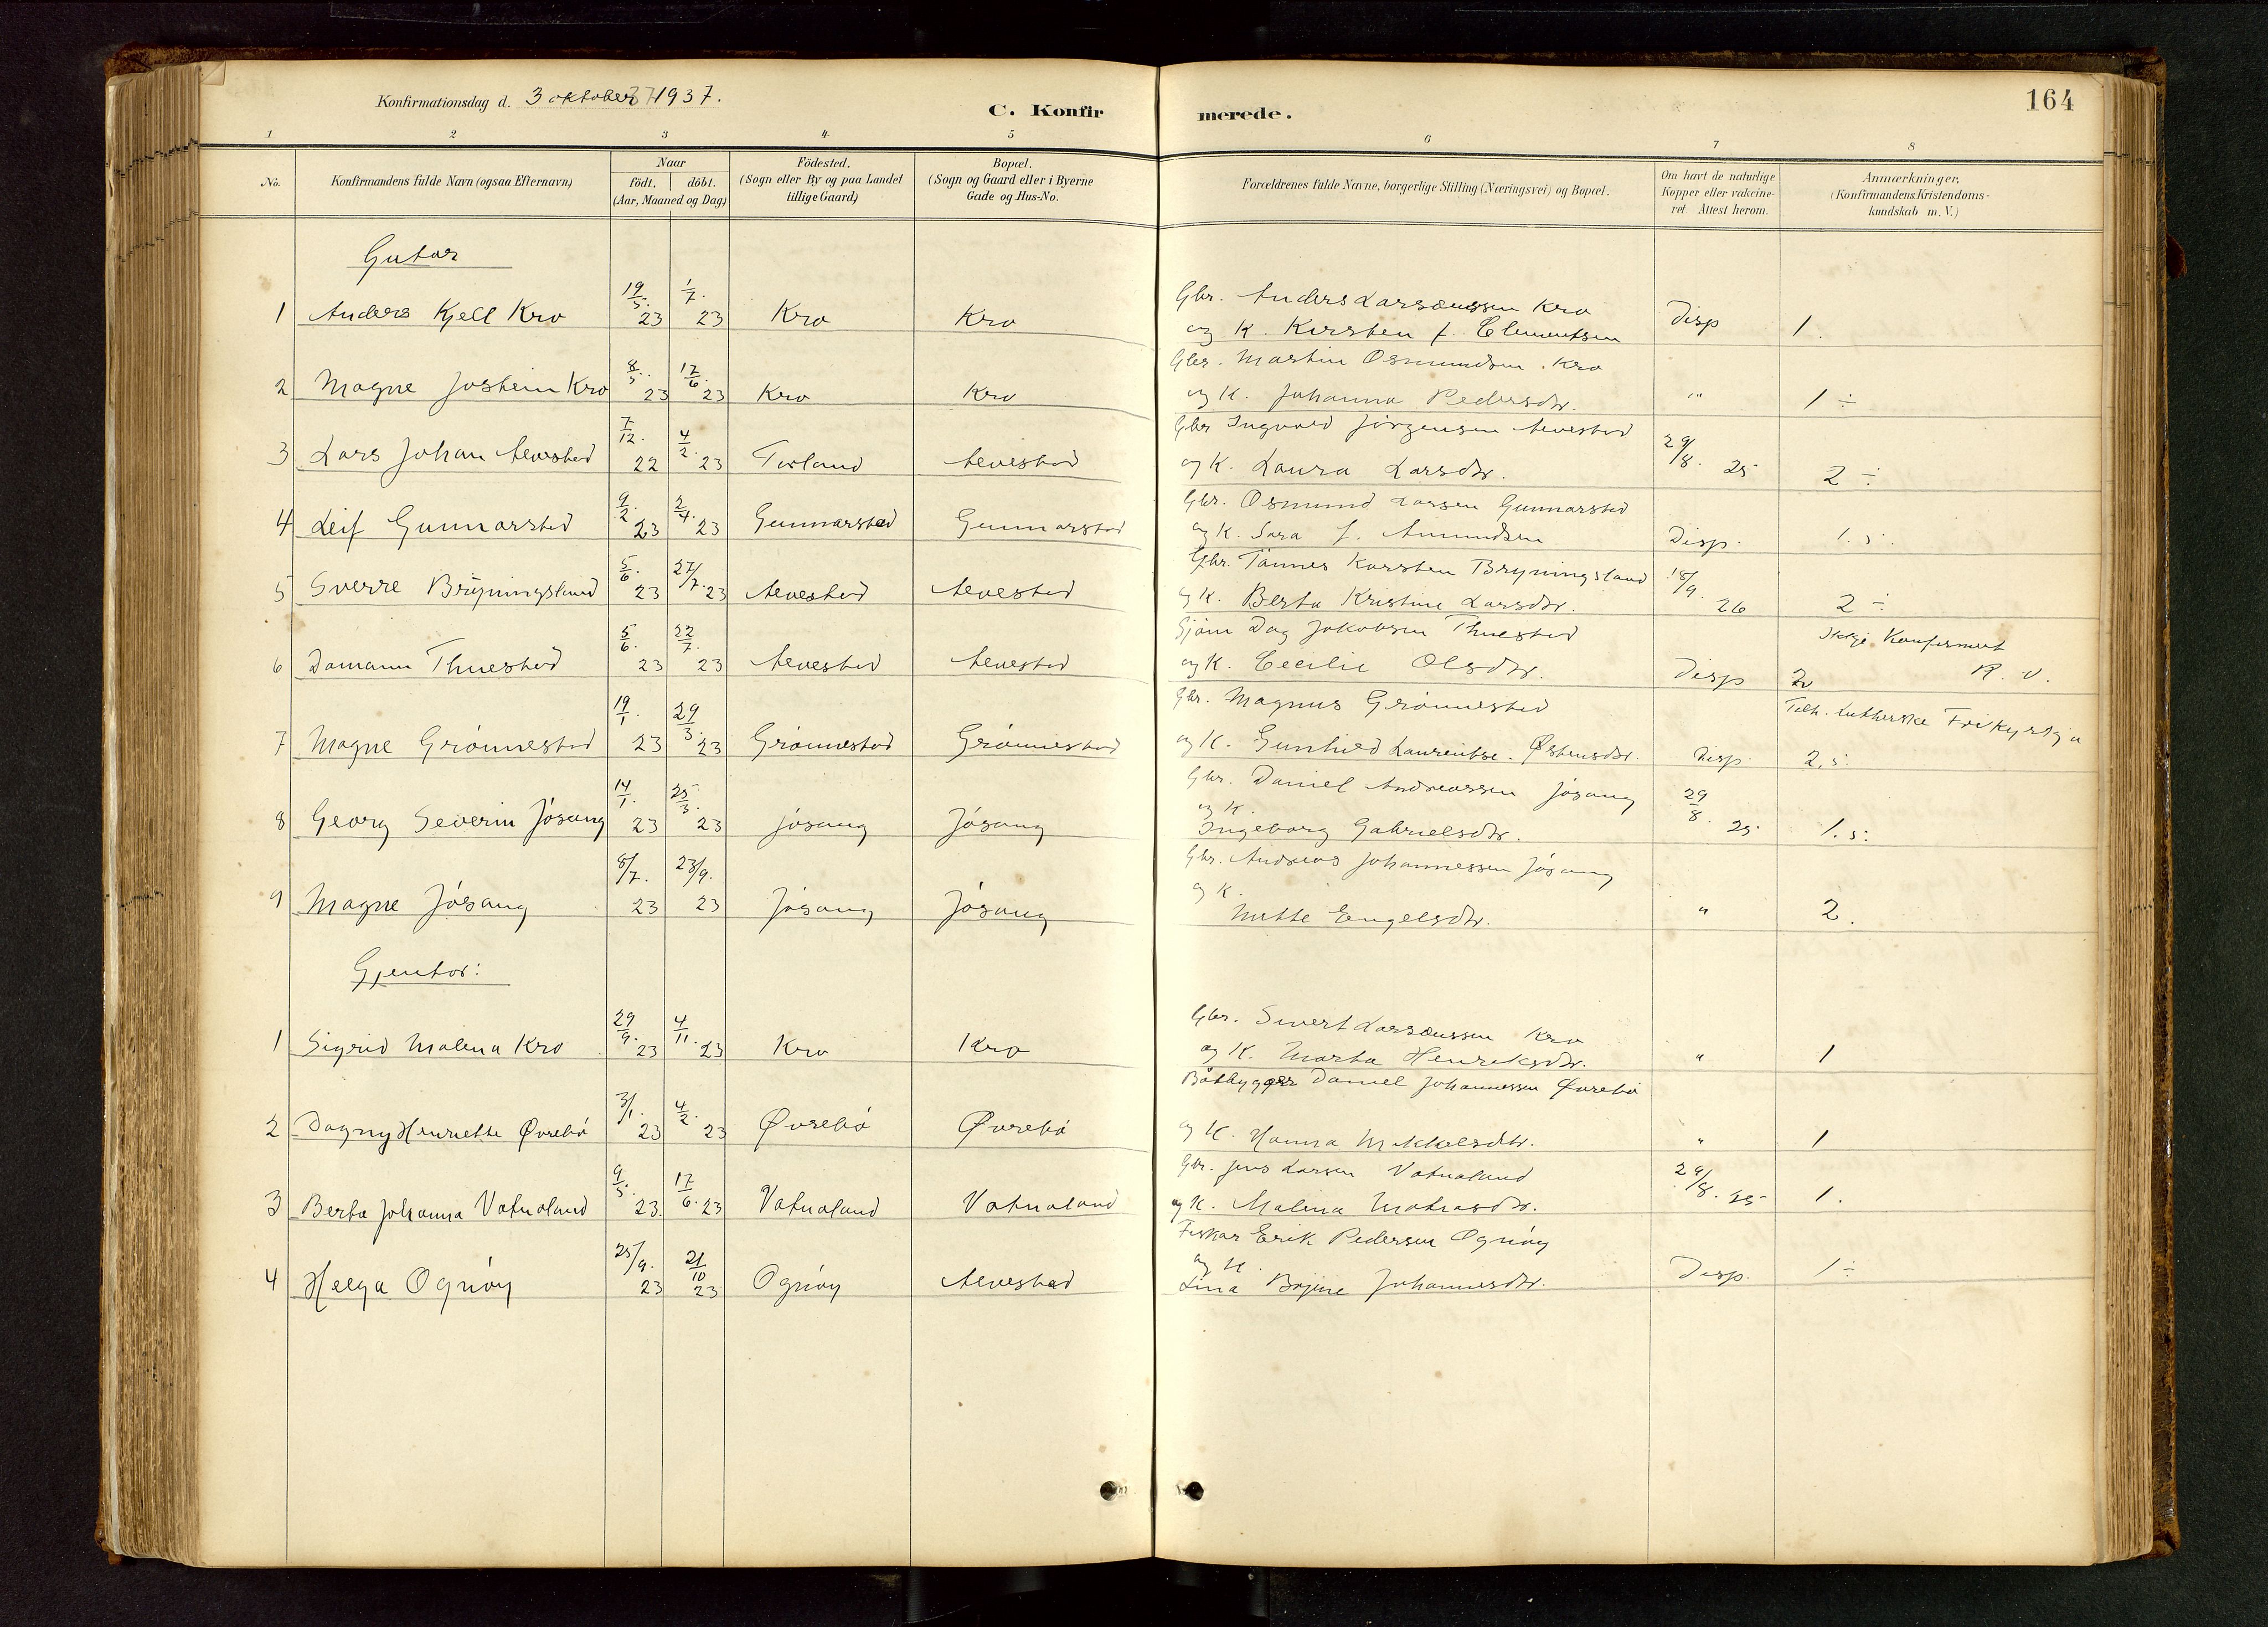 Konfirmationsdag d. 3 oktober 1937.
C. Konfirmerede.
164
1 2 3 4 5 6 7 8
No.
Konfirmandens fulde Navn (ogsaa Efternavn)
Naar
födt. döbt.
(Aar, Maaned og Dag)
Födested.
(Sogn eller By og paa Landet
tillige Gaard)
Bopæl.
(Sogn og Gaard eller i Byerne
Gade og Hus-No.
Forældrenes fulde Navne, borgerlige Stilling (Næringsvei) og Bopæl.
Om havt de naturlige
Kopper eller vakcine-
ret. Attest herom.
Anmærkninger,
(Konfirmandens Kristendoms-
kundskab m. V.)
Gutar
1 Anders Kjell Kro 19/5. 23 1/7. 23 Kro Kro Gbr. Anders Larsæussen Kro
og K. Kirsten f. Clementsen Disp 1.
2 Magne Jostein Kro 8/5. 23 17/6. 23 Kro Kro Gbr. Martin Osmundsen. Kro
og K. Johanna Pedersdtr. " 1 ÷
3 Lars Johan Alvestad 7/12. 22 4/2. 23 Torland Alvestad Gbr Ingvald Jörgensen Alvestad
og K. Laura Larsdtr. 29/8. 25 2 ÷
4 Leif Gunnarstad 9/2. 23 2/4. 23 Gunnarstad Gunnarstad Gbr. Osmund Larsen Gunnarstad
og K. Sara f. Amundsen Disp. 1.5.
5 Sverre Bryningsland 5/6. 23 27/7. 23 Alvestad Alvestad Gbr. Tönnes Karsten Bryningsland
og K. Berta Kristine Larsdtr. 18/9. 26 2 ÷
6 Damann Thuestad 5/6. 23 22/7. 23 Alvestad Alvestad Sjöm Dag Jakobsen Thuestad
og K. Cecilie Olsdtr. Disp 2 Ikkje Konfirmert
R. V.
7 Magne Grönnestad 19/1. 23 29/3. 23 Grönnestad Grönnestad Gbr. Magnus Grönnestad
og K. Gunhild Laurentse. Østensdtr. Disp. 2,5: Tilh. lutherske Frikyrkja
8 Georg Severin Jösang 14/1. 23 25/3. 23 Jösang Jösang Gbr. Daniel Andreassen Jösang
og K.
Ingeborg Gabrielsdtr. 29/8. 25 1.5:
9 Magne Jösang 8/7. 23 23/9. 23 Jösang Jösang Gbr. Andreas Johannessen Jösang
og K.
Mette Engelsdtr. " 2.
Gjentor:
1 Sigrid Malena Kro 29/9. 23 4/11. 23 Kro Kro Gbr. Sivert Larsæussen Kro
og K. Marta Henriksdtr. " 1
2 Dagny Henriette Øvrebö 3/1. 23 4/2. 23 Øvrebö Øvrebö Båtbygger Daniel Johannessen Øvrebö
og K. Hanna Mikkelsdtr. " 1
3 Berta Johanna Vatnaland 9/5. 23. 17/6. 23 Vatnaland Vatnaland Gbr. Jens Larsen Vatnaland
og K. Malena Matiasdtr. 29/8. 25 1.
4 Helga Ognöy 25/9. 23 21/10 23 Ognöy Alvestad Fiskar Erik Pedersen Ognöy
og K.
Lina Bojine Johannesdtr. Disp. 1 ÷